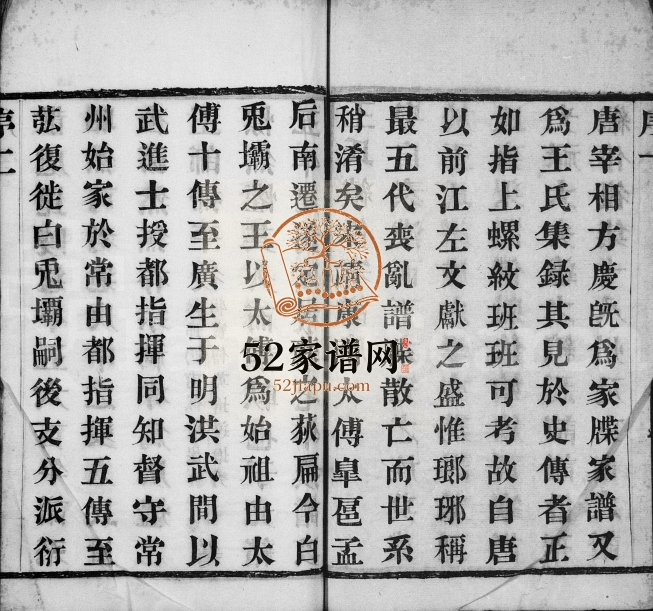 序一
唐宰相方慶既爲家牒家譜又
爲王氏集録其見於史傳者正
如指上螺紋班班可考故自唐
以前江左文獻之盛惟瑯琊稱
最五代喪亂譜牒散亡而世系
稍淆矣宋 太傅皐邑孟
后南遷遂定 之荻扁今白
兎壩之王以太傅爲始祖由太
傅十傳至廣生于明洪武間以
武進士授都指揮同知督守常
州始家於常由都指揮五傳至
紘復徙白兎壩嗣後支分派衍
序二
52家谱网
52jiapu.com